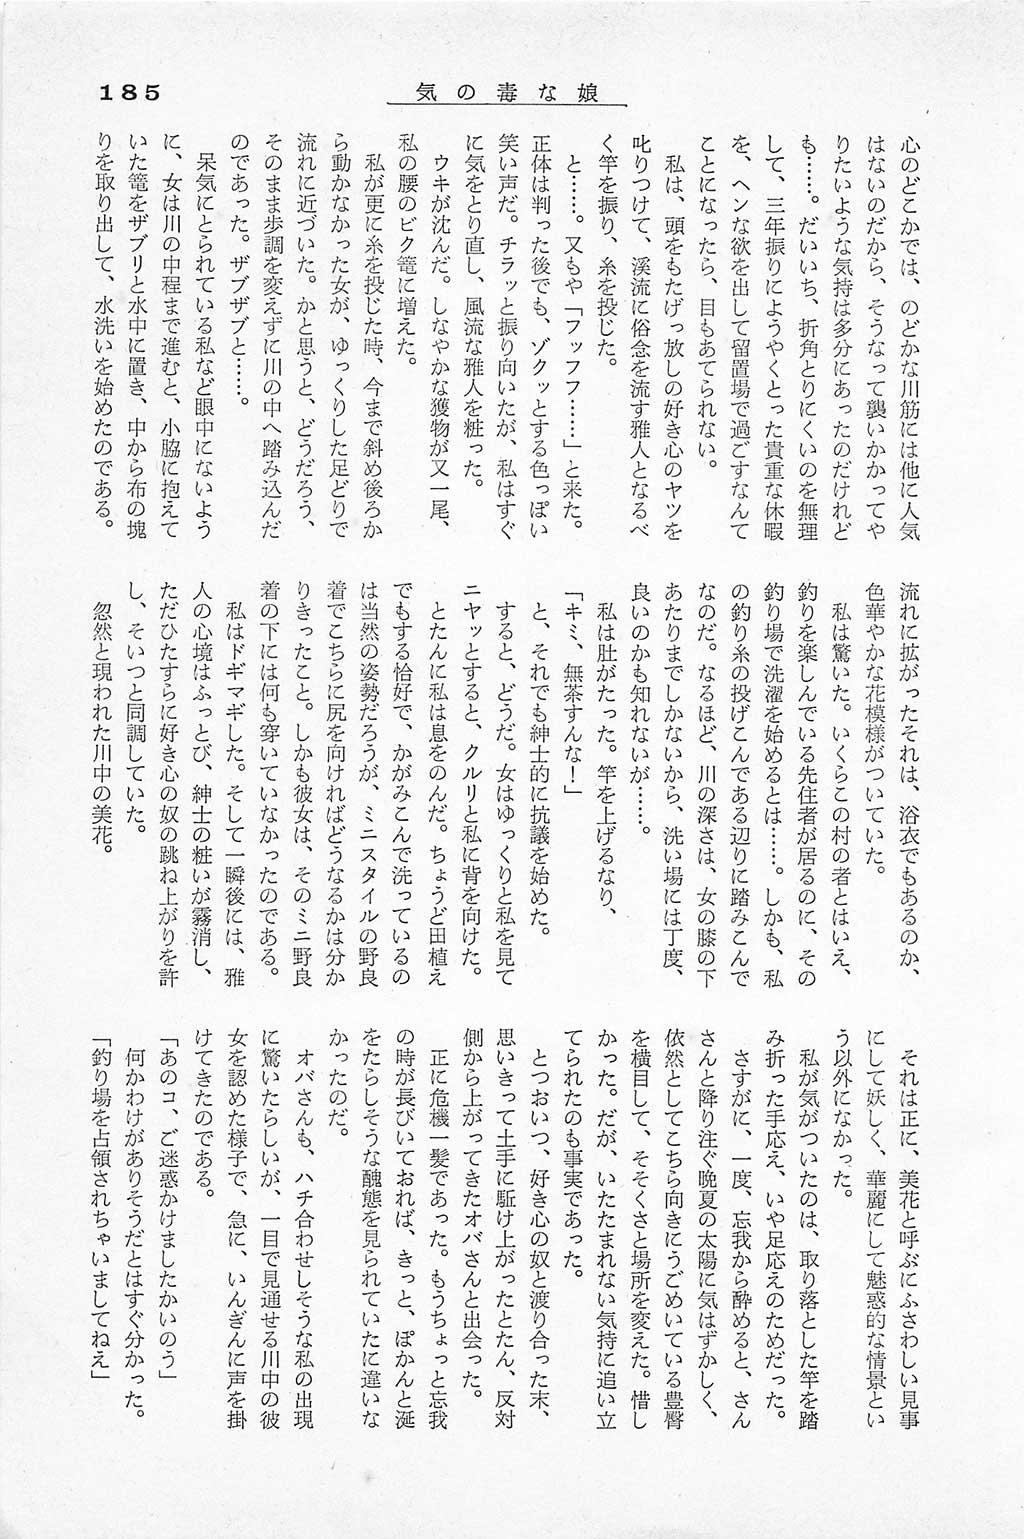 185
気の毒な娘
心のどこかでは、のどかな川筋には他に人気
はないのだから、そうなって襲いかかってや
りたいような気持は多分にあったのだけれど
も……。だいいち、折角とりにくいのを無理
して、三年振りにようやくとった貴重な休暇
を、ヘンな欲を出して留置場で過ごすなんて
ことになったら、目もあてられない。
私は、頭をもたげっ放しの好き心のヤツを
叱りつけて、渓流に俗念を流す雅人となるべ
く竿を振り、糸を投じた。
と……。又もや「フッフフ……」と来た。
正体は判った後でも、ゾクッとする色っぽい
笑い声だ。チラッと振り向いたが、私はすぐ
に気をとり直し、風流な雅人を粧った。
ウキが沈んだ。しなやかな獲物が又一尾、
私の腰のビク篭に増えた。
私が更に糸を投じた時、今まで斜め後ろか
ら動かなかった女が、ゆっくりした足どりで
流れに近づいた。かと思うと、どうだろう、
そのまま歩調を変えずに川の中へ踏み込んだ
のであった。ザブザブと……。
呆気にとられている私など眼中にないよう
に、女は川の中程まで進むと、小脇に抱えて
いた篭をザブリと水中に置き、中から布の塊
りを取り出して、水洗いを始めたのである。
流れに拡がったそれは、浴衣でもあるのか、
色華やかな花模様がついていた。
私は驚いた。いくらこの村の者とはいえ、
釣りを楽しんでいる先住者が居るのに、その
釣り場で洗濯を始めるとは……。しかも、私
の釣り糸の投げこんである辺りに踏みこんで
なのだ。なるほど、川の深さは、女の膝の下
あたりまでしかないから、洗い場には丁度、
良いのかも知れないが……。
私は肚がたった。竿を上げるなり、
「キミ、無茶すんな！」
と、それでも紳士的に抗議を始めた。
すると、どうだ。女はゆっくりと私を見て
ニヤッとすると、クルリと私に背を向けた。
とたんに私は息をのんだ。ちょうど田植え
でもする恰好で、かがみこんで洗っているの
は当然の姿勢だろうが、ミニスタイルの野良
着でこちらに尻を向ければどうなるかは分か
りきったこと。しかも彼女は、そのミニ野良
着の下には何も穿いていなかったのである。
私はドギマギした。そして一瞬後には、雅
人の心境はふっとび、紳士の粧いが霧消し、
ただひたすらに好き心の奴の跳ね上がりを許
し、そいつと同調していた。
忽然と現われた川中の美花。
それは正に、美花と呼ぶにふさわしい見事
にして妖しく、華麗にして魅惑的な情景とい
う以外になかった。
私が気がついたのは、取り落とした竿を踏
み折った手応え、いや足応えのためだった。
さすがに、一度、忘我から酔めると、さん
さんと降り注ぐ晩夏の太陽に気はずかしく、
依然としてこちら向きにうごめいている豊臀
を横目して、そそくさと場所を変えた。惜し
かった。だが、いたたまれない気持に追い立
てられたのも事実であった。
とつおいつ、好き心の奴と渡り合った末、
思いきって土手に駈け上がったとたん、反対
側から上がってきたオバさんと出会った。
正に危機一髪であった。もうちょっと忘我
の時が長びいておれば、きっと、ぽかんと涎
をたらしそうな醜態を見られていたに違いな
かったのだ。
オバさんも、ハチ合わせしそうな私の出現
に驚いたらしいが、一目で見通せる川中の彼
女を認めた様子で、急に、いんぎんに声を掛
けてきたのである。
「あのコ、ご迷惑かけましたかいのう」
何かわけがありそうだとはすぐ分かった。
「釣り場を占領されちゃいましてねえ」